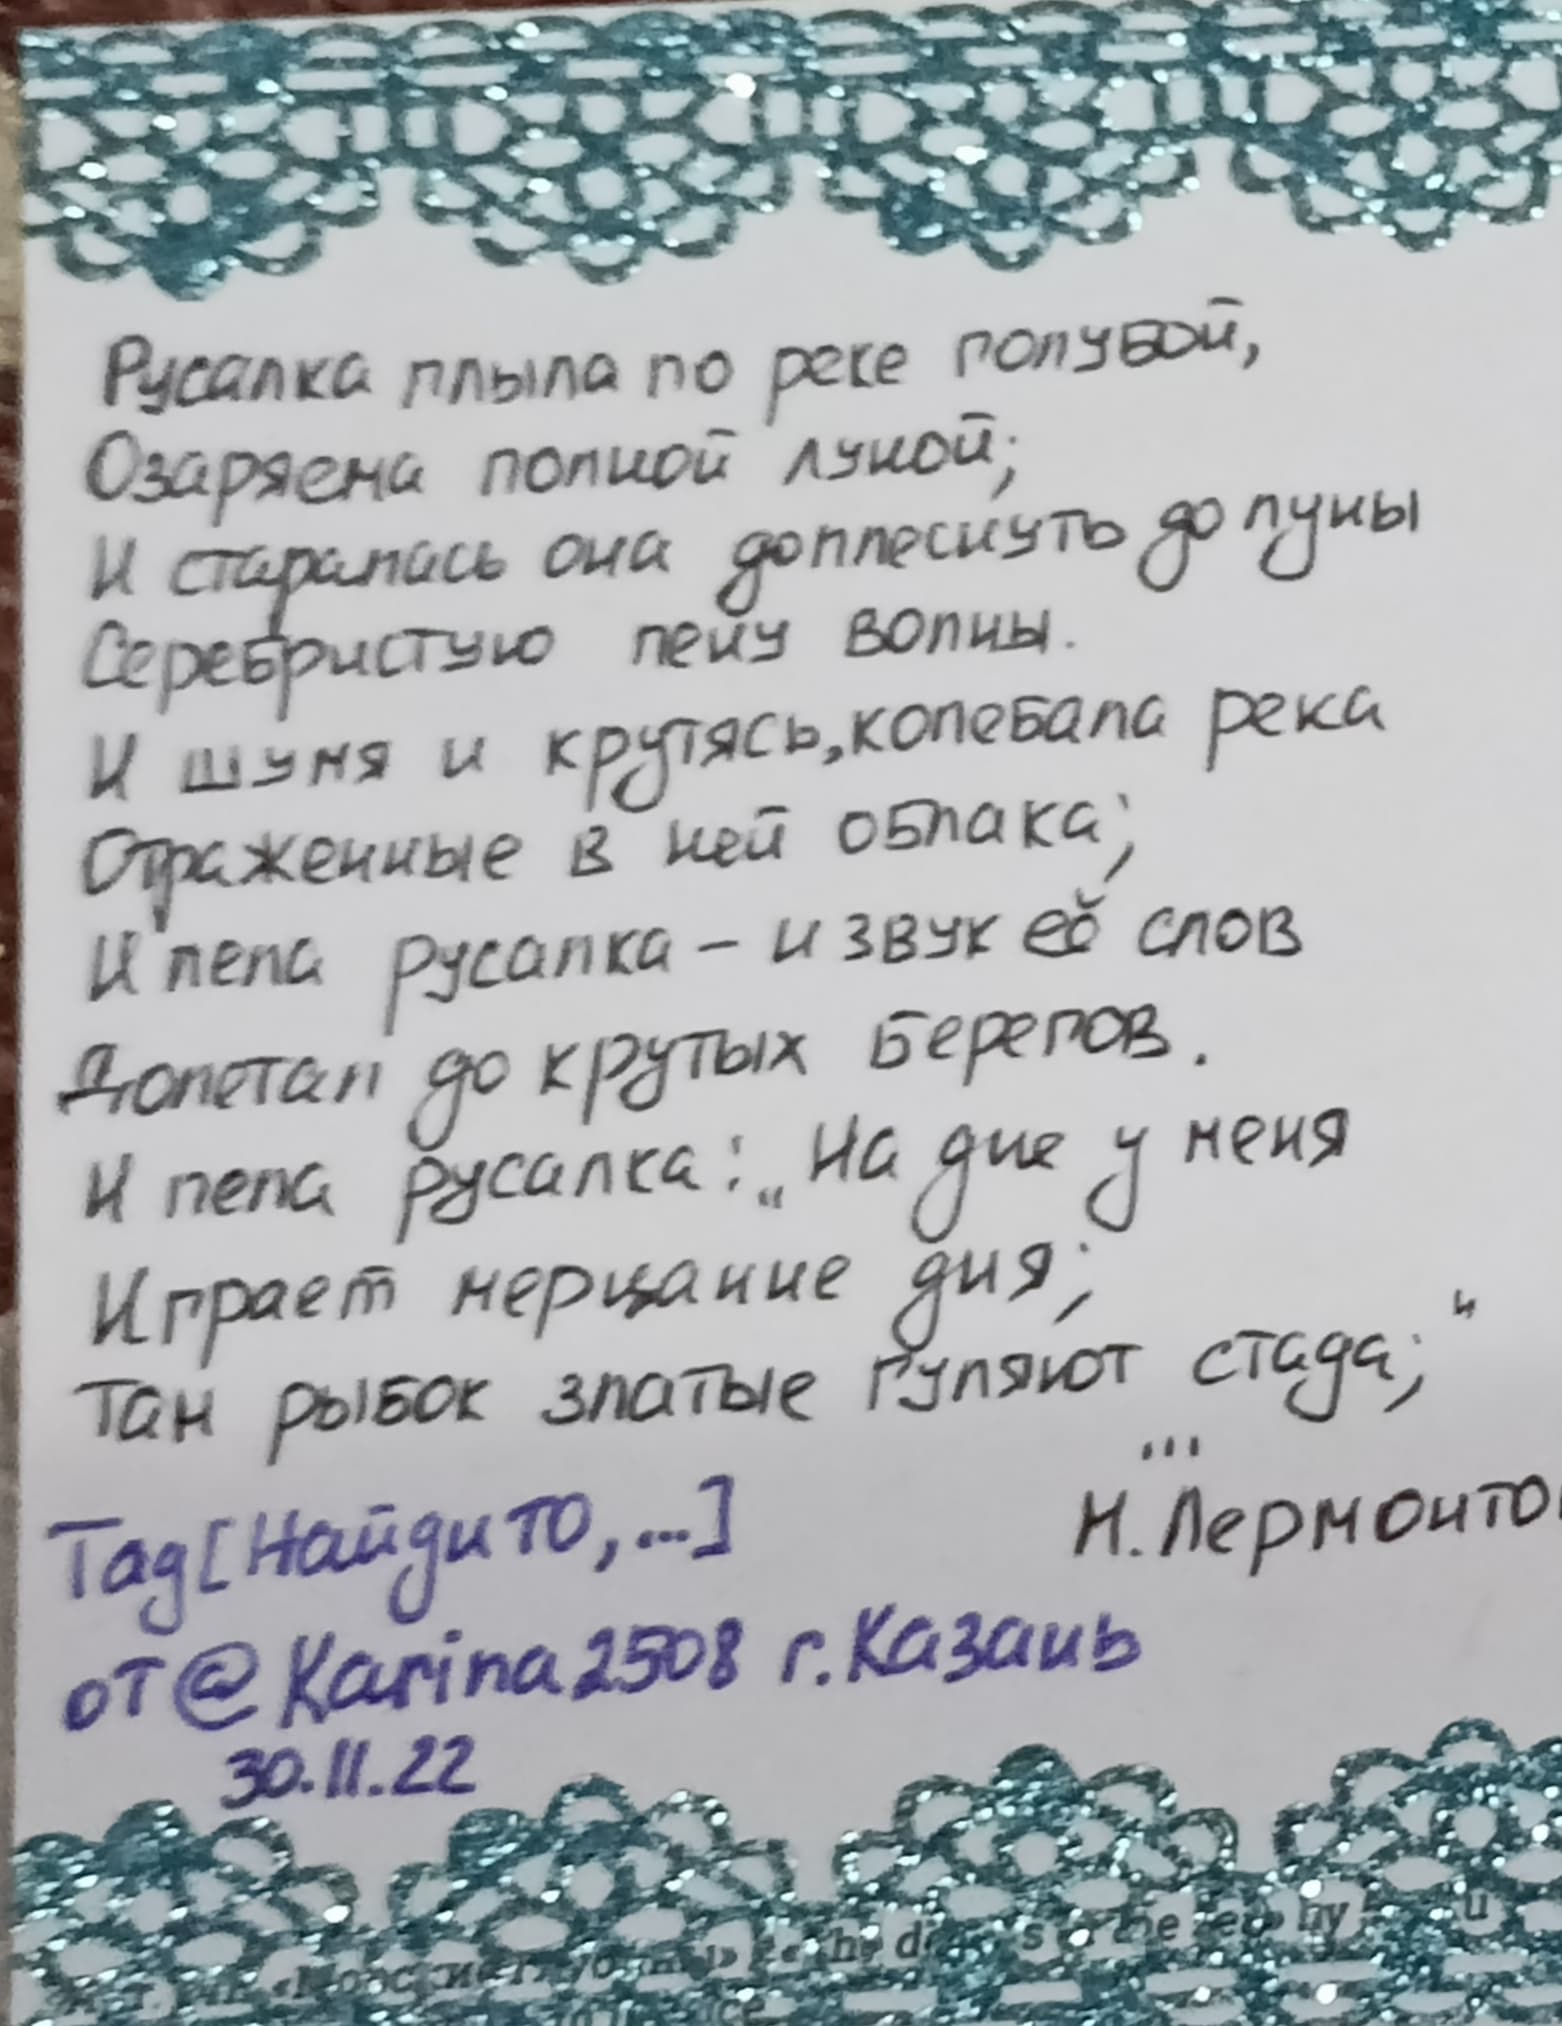 Русалка плыла по реке голубой,
Озаряема полной луной;
И старалась она доплеснуть до луны
Серебристую пену волны.
И шумя и крутясь, колебала река
Отраженные в ней облака;
И пела русалка – и звук её слов
Долетал до крутых берегов.
И пела русалка: „На дне у меня
Играет мерцание дня;
Там рыбок златые гуляют стада;"
...
М. Лермонто
Тад [Найди то, ...]
от @Karina2508 г. Казань
30.11.22